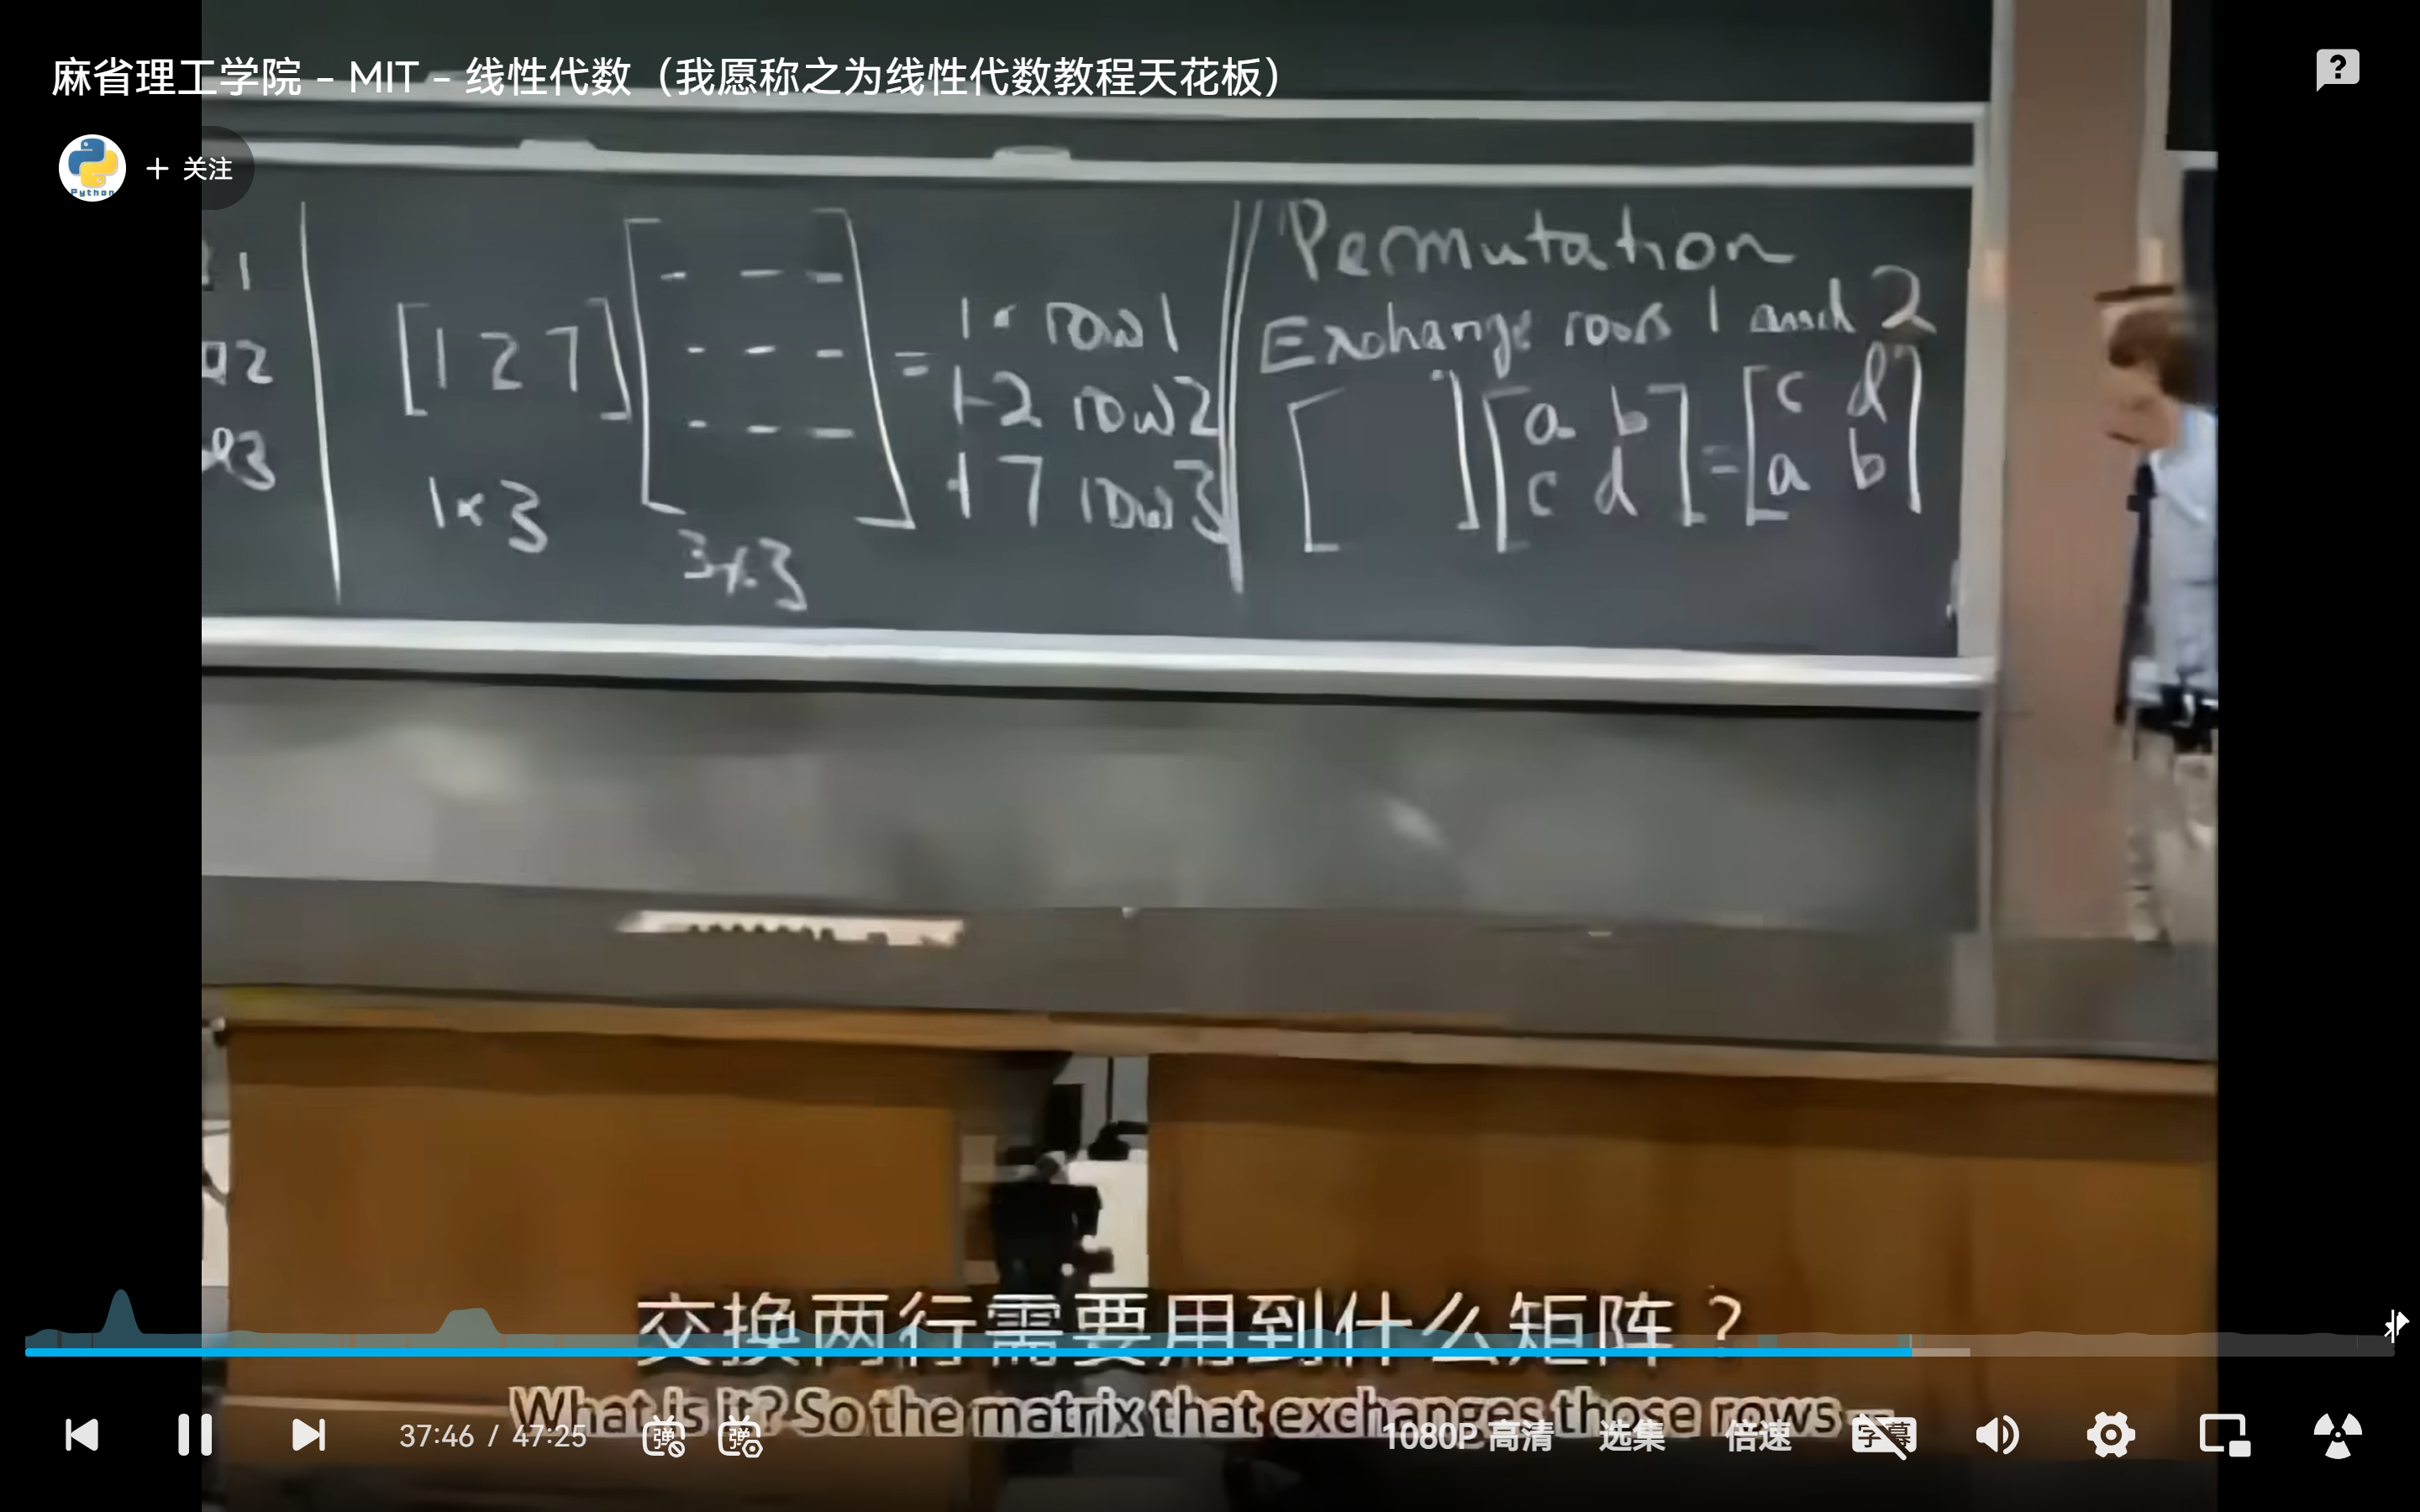 麻省理工学院 - MIT - 线性代数（我愿称之为线性代数教程天花板）
Python
+ 关注
1
2
3
[1 2 7]
1×3
[- - -
- - -
- - -]
3×3
= 1 × row1
+2 row2
+7 row3
Permutation
Exchange rows 1 and 2
[ ] [a b
c d] = [c d
a b]
交换两行需要用到什么矩阵？
What is it? So the matrix that exchanges those rows
37:46 / 47:25
弹
弹
1080P 高清
选集
倍速
字幕